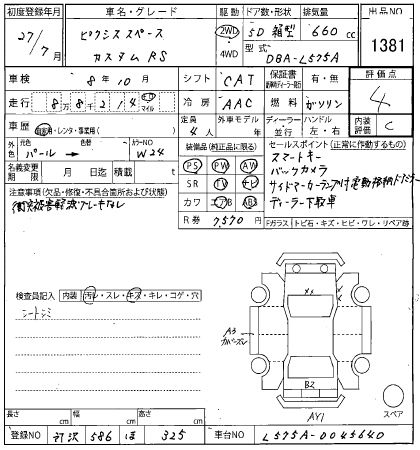 初度登録年月 車名・グレード 駆動 ドア数・形状 排気量 出品NO
27/7月 ピクシス スペース カスタム RS 2WD 4WD 5D 箱型 660 cc 1381
型式 DBA-L575A
車検 8年10月 シフト CAT 保証書 有・無 評価点
走行 8万8千214 キロ マイル 冷房 AAC 燃料 ガソリン 4
車歴 自家用・レンタ・事業用( ) 定員 4人 外車モデル年 ディーラー 並行 ハンドル 左・右 内装評価 C
外色 元色 パール → 色替 カラーNO W24 装備品 (純正品に限る) セールスポイント (正常に作動するもの)
名義変更期限 月 日迄 積載 t PS PW AW スマートキー
SR TV ナビ バックカメラ
注意事項 (欠品・修復・不具合箇所および状態) カワ エアB ABS サイドマーカーランプ付電動格納ドアミラー
衝突被害軽減ブレーキなし R券 7,570円 ディーラー下取車
Fガラス トビ石・キズ・ヒビ・ワレ・リペア跡
検査員記入 内装 汚レ・スレ・キズ・キレ・コゲ・穴
シートシミ
A3
B2
AY1 スペア
長さ cm 幅 cm 高さ cm
登録NO 所沢 586 ほ 325 車台NO L575A-0045640